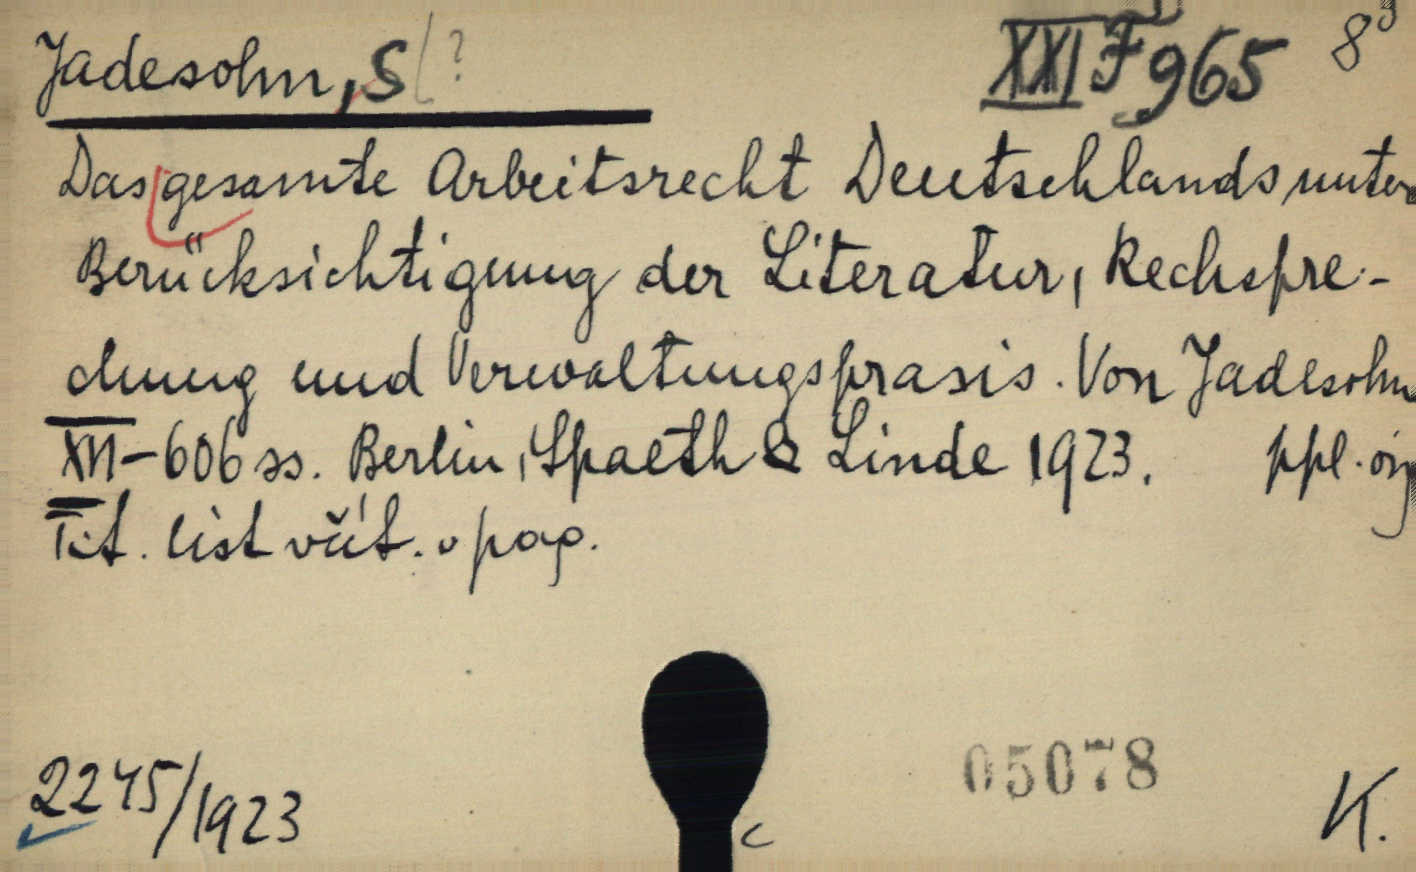 Jadesohn, S ?
XXI F 965 8°
Das gesamte Arbeitsrecht Deutschlands unter
Berücksichtigung der Literatur, Rechspre-
chung und Verwaltungspraxis. Von Jadesohn
XII-606 ss. Berlin, Spaeth & Linde 1923. ppl. orig
Tit. list včít. v pag.
2245/1923
05078
c
K.